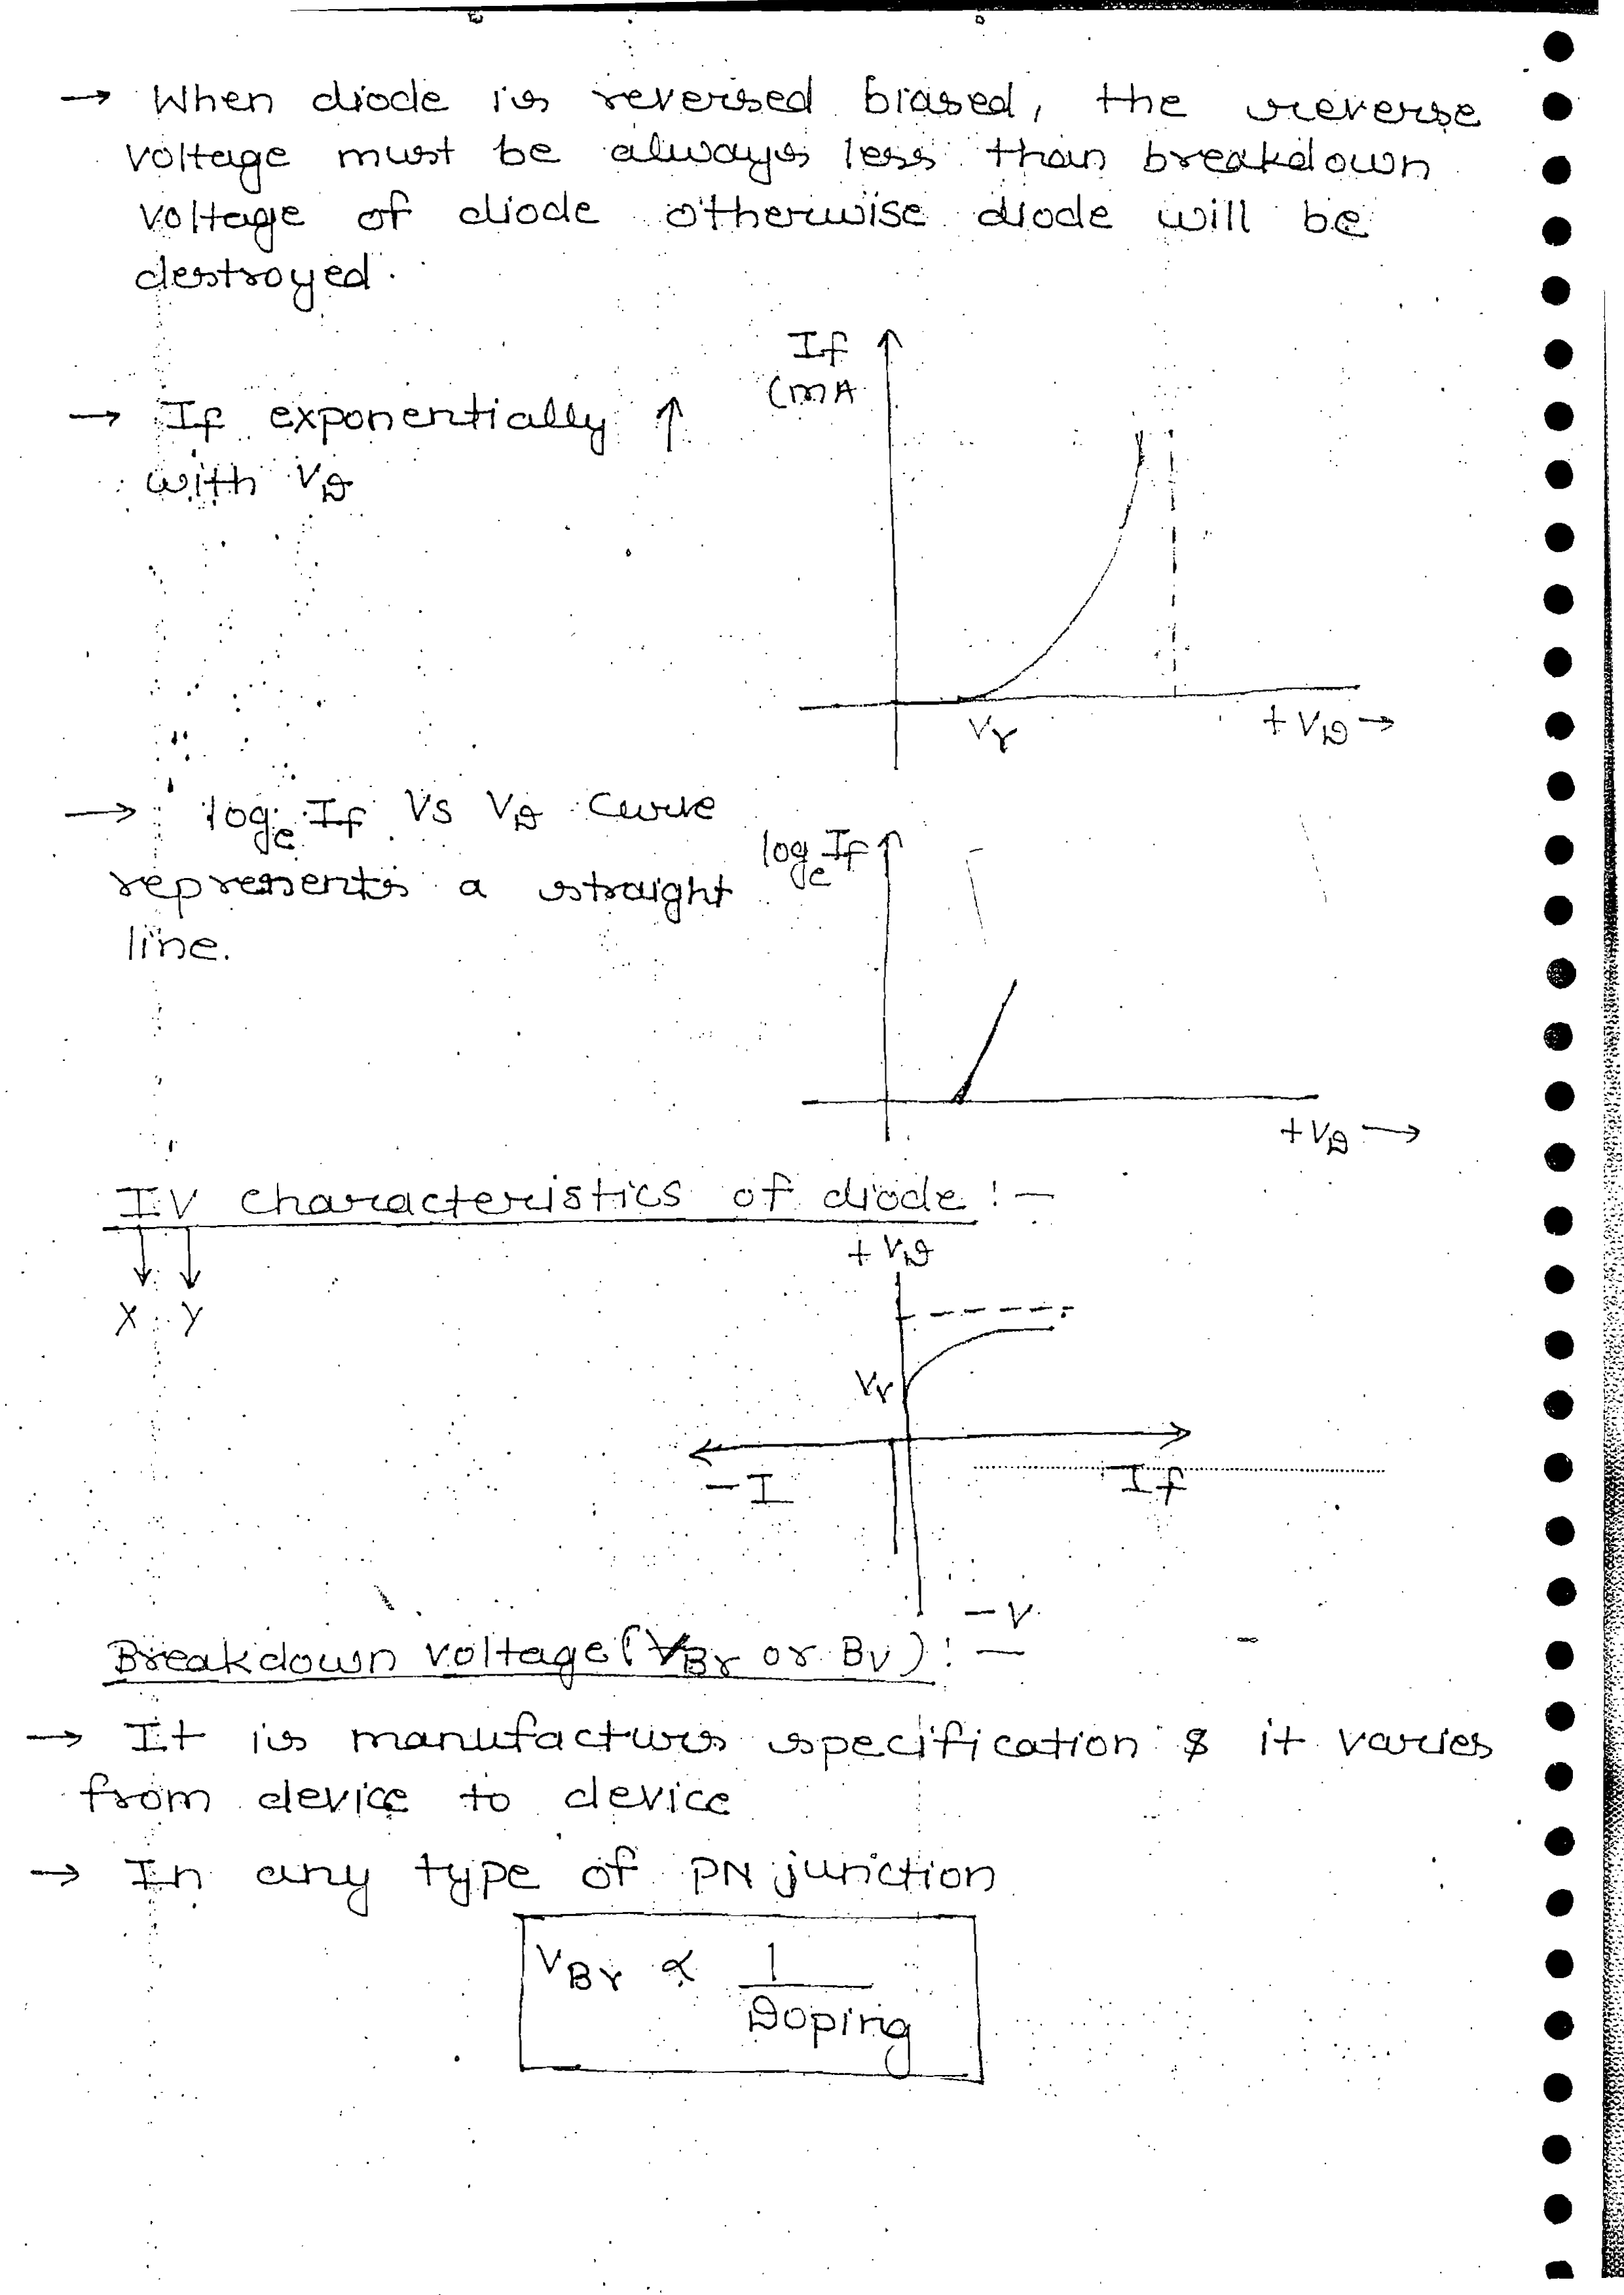 → When diode is reversed biased, the reverse
voltage must be always less than breakdown
voltage of diode otherwise diode will be
destroyed.
If
(mA
→ If exponentially ↑
with VD
Vγ
+VD →
→ loge If Vs VD curve
represents a straight
line.
loge If
+VD →
IV characteristics of diode :-
X Y
+VD
Vγ
-I
If
-V
Breakdown voltage (VBr or BV) :-
→ It is manufacturs specification & it varies
from device to device
→ In any type of PN junction
VBr ∝ 1
Doping